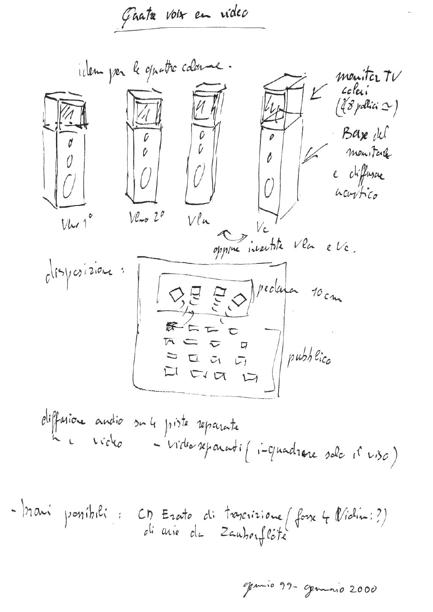 Quatre voix en video
idem per le quattro colonne.
monitor TV
color
(8 pollici ≃)
Base del
monitor
e diffusore
acustico
Vlno 1° Vlno 2° Vla Vc
oppure invertite Vla e Vc.
disposizione :
pedana 10 cm
pubblico
diffusione audio su 4 piste separate
video - video separati ( inquadrare solo il viso)
- brani possibili : CD Erato di trascrizione ( forse 4 Violini ?)
di arie da Zauberflöte
gennaio 2000